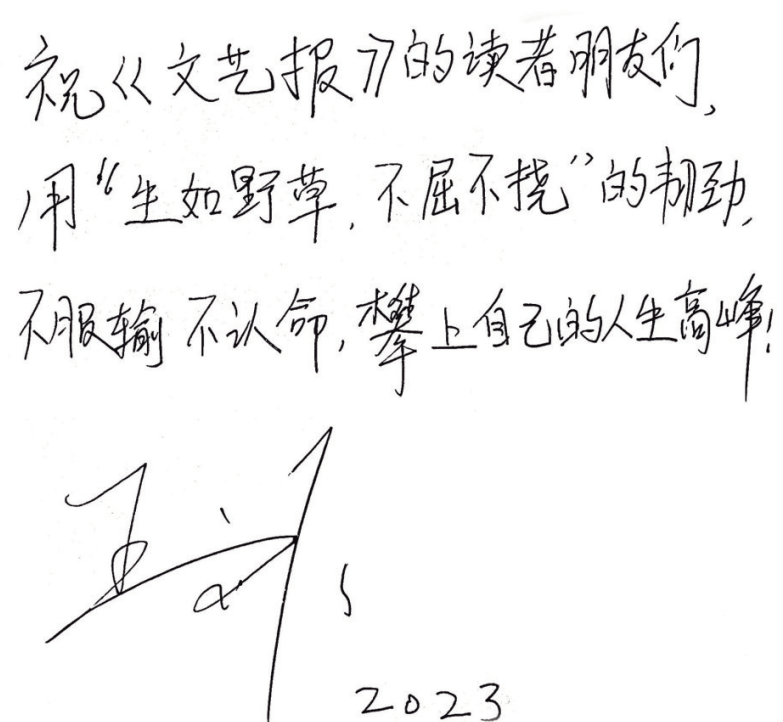 祝《文艺报》的读者朋友们,
用“生如野草,不屈不挠”的韧劲,
不服输 不认命,攀上自己的人生高峰!
2023